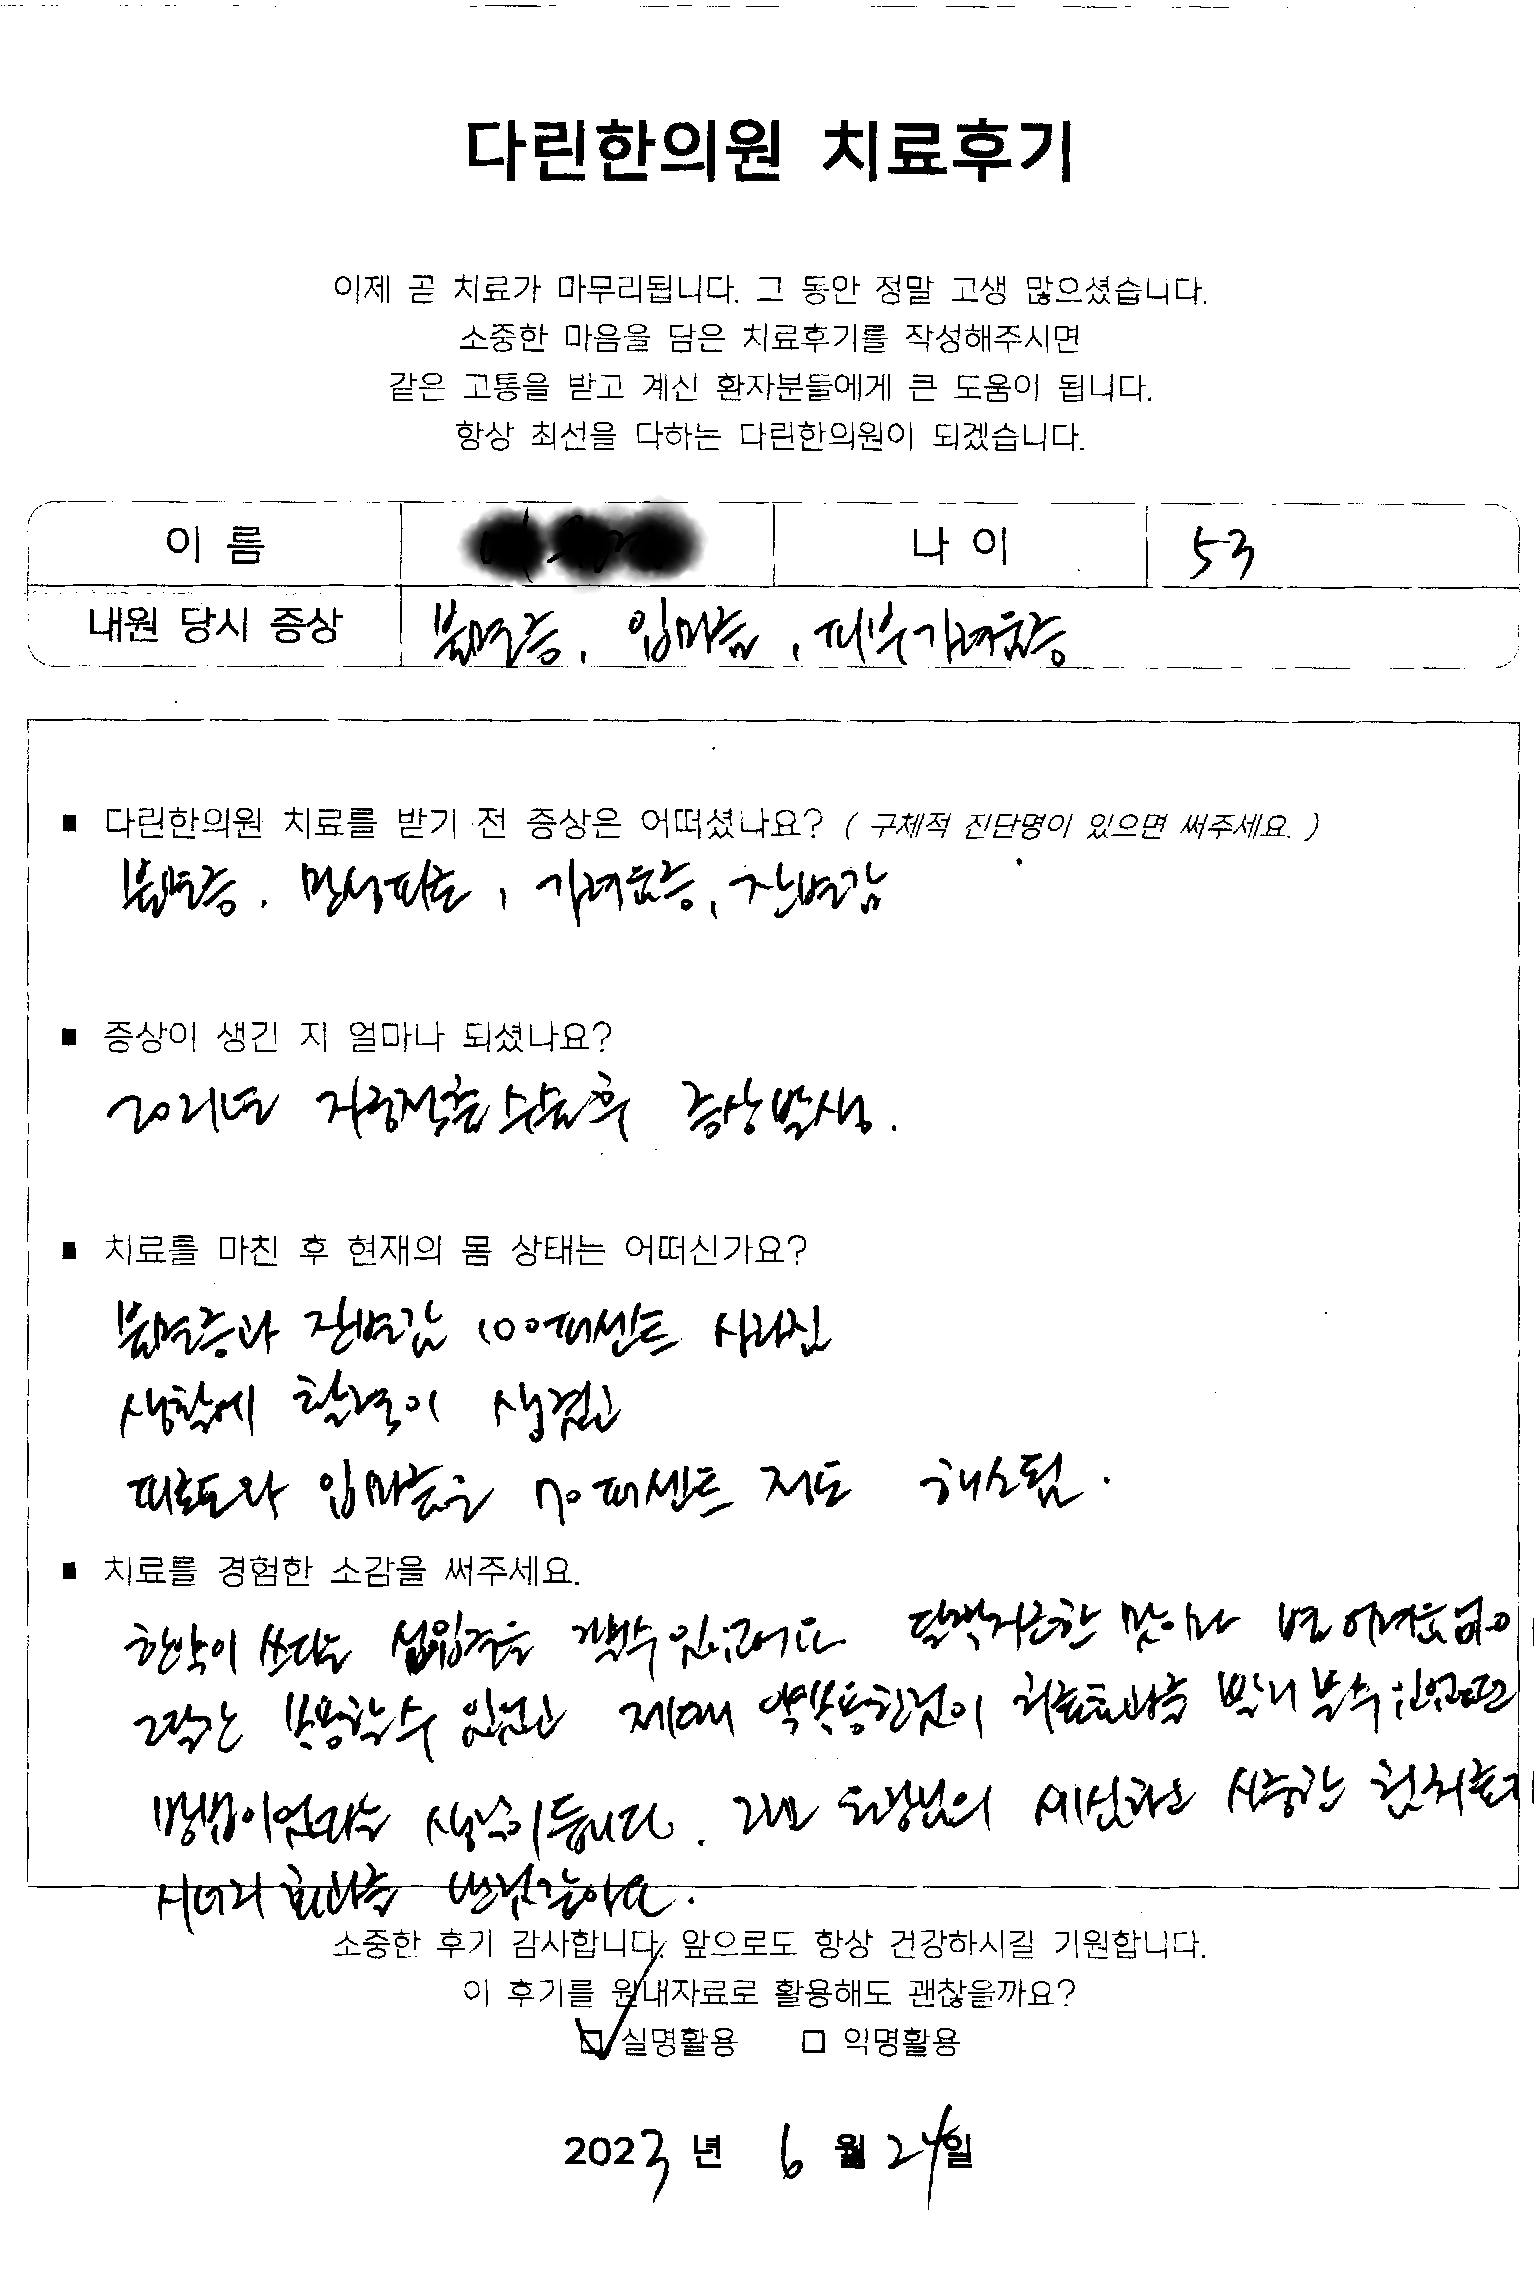 다린한의원 치료후기
이제 곧 치료가 마무리됩니다. 그 동안 정말 고생 많으셨습니다.
소중한 마음을 담은 치료후기를 작성해주시면
같은 고통을 받고 계신 환자분들에게 큰 도움이 됩니다.
항상 최선을 다하는 다린한의원이 되겠습니다.
이 름 나 이 53
내원 당시 증상 불면증, 입마름, 피부가려움증
■ 다린한의원 치료를 받기 전 증상은 어떠셨나요? ( 구체적 진단명이 있으면 써주세요. )
불면증, 만성피로, 가려움증, 잔변감
■ 증상이 생긴 지 얼마나 되셨나요?
2021년 자궁적출수술후 증상발생.
■ 치료를 마친 후 현재의 몸 상태는 어떠신가요?
불면증과 잔변감 100퍼센트 사라진
생활에 활력이 생겼고
피로도와 입마름은 70퍼센트 정도 해소됨.
■ 치료를 경험한 소감을 써주세요.
한약이 쓰다는 선입견을 깰수있었어요 달짝지근한 맛이라 별 어려움없이
2달간 복용할수 있었고 제때 약복용한것이 치료효과를 빨리 볼수 있었던
방법이었다는 생각이듭니다. 그리고 원장님의 세심하고 시술한 침치료가
시너지 효과를 낸것같아요.
소중한 후기 감사합니다. 앞으로도 항상 건강하시길 기원합니다.
이 후기를 원내자료로 활용해도 괜찮을까요?
실명활용 익명활용
2023년 6월 24일